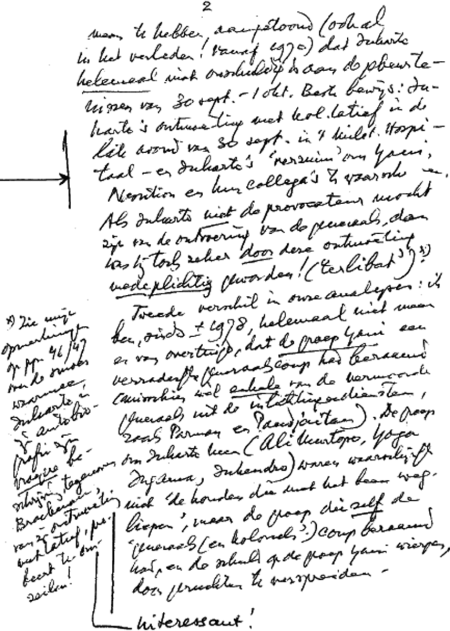 2
men te hebben, aangetoond (ook al
in het verleden! vanaf 1970) dat Suharto
helemaal niet onschuldig is aan de gebeurte-
nissen van 30 sept. - 1 okt. Beste bewijs: Su-
harto's ontmoeting met kol. Latief in de
late avond van 30 sept. in 't milit. Hospi-
taal - en Suharto's 'verzuim' om Yani,
Nasution en hun collega's te waarschuwen.
Als Suharto niet de provocateur mocht
zijn van de ontvoering van de generaals, dan
was hij toch zeker door deze ontmoeting
medeplichtig geworden! ("terlibat")! x)
Tweede verschil in onze analyses: ik
ben, sinds ± 1978, helemaal niet meer
er van overtuigd, dat de groep Yani een
verraderlijke generaalscoup had beraamd
(misschien wel enkele van de vermoorde
generaals uit de inlichtingendiensten,
zoals Parman en Pandjaitan). De groep
om Suharto heen (Ali Murtopo, Yoga
Sugama, Suhendro) waren waarschijnlijk
niet 'de honden die met het been weg-
liepen', maar de groep die zelf de
generaals (en kolonels?) coup beraamd
had, en de schuld op de groep Yani wierpen,
door geruchten te verspreiden -
interessant!
x) Zie mijn
opmerkingen
op pp. 46/47
over de
waarmee
Suharto in
zijn autobio-
grafie zijn
be-
schrijving tegenover
Brackman,
van zijn ontmoeting
met Latief, pro-
beert te om-
zeilen!